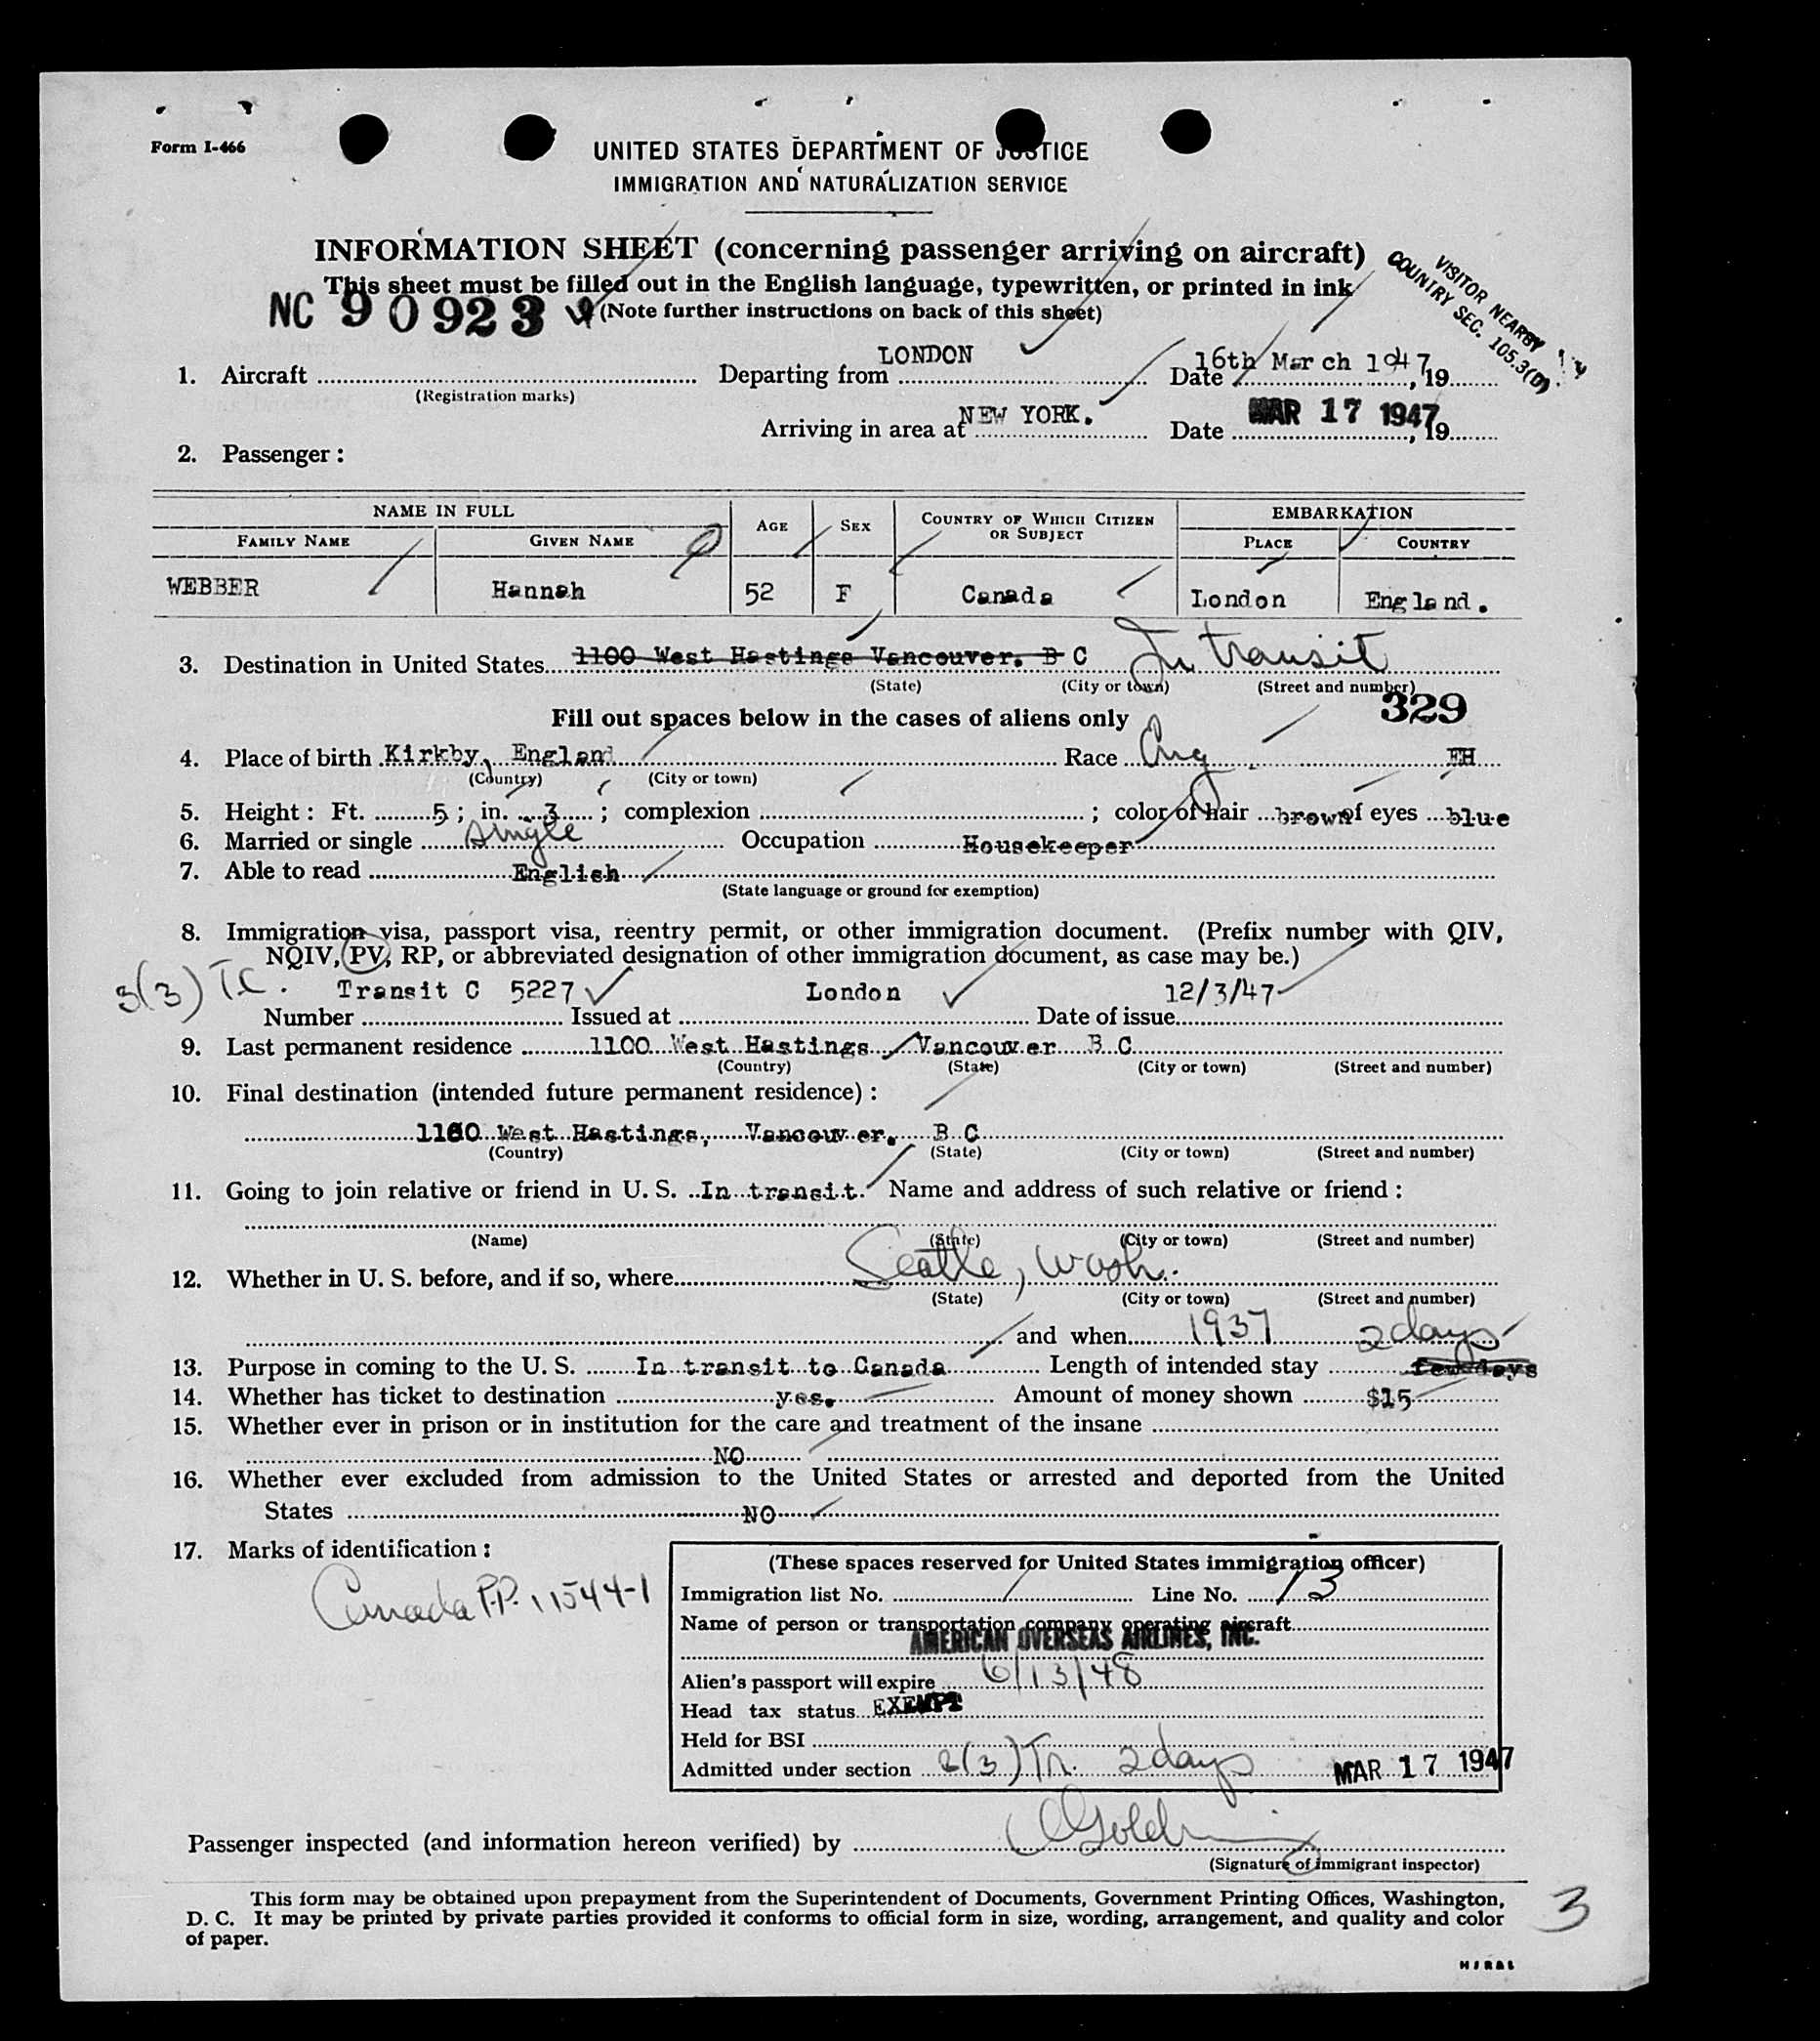 Form I-466
UNITED STATES DEPARTMENT OF JUSTICE
IMMIGRATION AND NATURALIZATION SERVICE
INFORMATION SHEET (concerning passenger arriving on aircraft)
This sheet must be filled out in the English language, typewritten, or printed in ink
NC 90923 (Note further instructions on back of this sheet)
VISITOR NEARBY
COUNTRY SEC. 105.3(D)
1. Aircraft Departing from LONDON Date 16th March 1947, 19
(Registration marks)
Arriving in area at NEW YORK. Date MAR 17 1947, 19
2. Passenger:
NAME IN FULL AGE SEX COUNTRY OF WHICH CITIZEN OR SUBJECT EMBARKATION
FAMILY NAME GIVEN NAME PLACE COUNTRY
WEBBER Hannah 52 F Canada London England.
3. Destination in United States 1100 West Hastings Vancouver. B C In transit
(State) (City or town) (Street and number)
329
Fill out spaces below in the cases of aliens only
4. Place of birth Kirkby, England Race Eng EH
(Country) (City or town)
5. Height: Ft. 5; in. 3; complexion ; color of hair brown of eyes blue
6. Married or single single Occupation Housekeeper
7. Able to read English
(State language or ground for exemption)
8. Immigration visa, passport visa, reentry permit, or other immigration document. (Prefix number with QIV,
NQIV, PV, RP, or abbreviated designation of other immigration document, as case may be.)
3(3) T.C. Transit C 5227 London 12/3/47
Number Issued at Date of issue
9. Last permanent residence 1100 West Hastings Vancouver B C
(Country) (State) (City or town) (Street and number)
10. Final destination (intended future permanent residence):
1100 West Hastings, Vancouver, B C
(Country) (State) (City or town) (Street and number)
11. Going to join relative or friend in U. S. In transit. Name and address of such relative or friend:
(Name) (State) (City or town) (Street and number)
12. Whether in U. S. before, and if so, where Seattle, Wash.
(State) (City or town) (Street and number)
and when 1937 2 days
13. Purpose in coming to the U. S. In transit to Canada Length of intended stay few days
14. Whether has ticket to destination yes. Amount of money shown $15
15. Whether ever in prison or in institution for the care and treatment of the insane
NO
16. Whether ever excluded from admission to the United States or arrested and deported from the United
States NO
17. Marks of identification:
Canada P.P. 11544-1
(These spaces reserved for United States immigration officer)
Immigration list No. Line No. 13
Name of person or transportation company operating aircraft
AMERICAN OVERSEAS AIRLINES, INC.
Alien's passport will expire 6/13/48
Head tax status EXEMPT
Held for BSI
Admitted under section 3(3) Tr. 2 days MAR 17 1947
Passenger inspected (and information hereon verified) by
(Signature of immigrant inspector)
This form may be obtained upon prepayment from the Superintendent of Documents, Government Printing Offices, Washington,
D. C. It may be printed by private parties provided it conforms to official form in size, wording, arrangement, and quality and color
of paper.
3